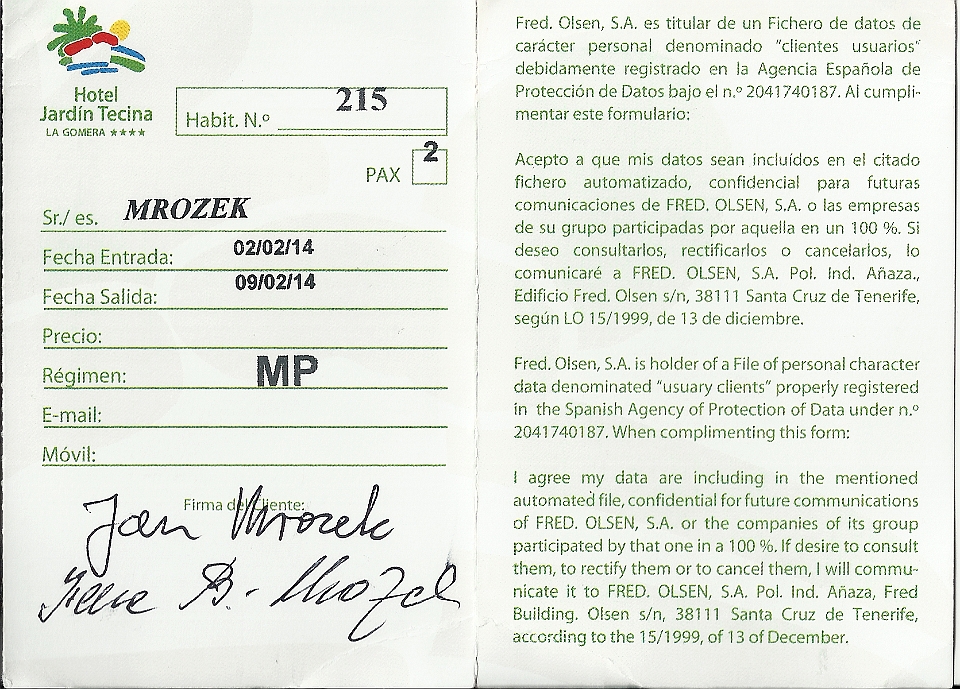 Hotel
Jardín Tecina
LA GOMERA ★★★★
Habit. N.º 215
PAX 2
Sr./ es. MROZEK
Fecha Entrada: 02/02/14
Fecha Salida: 09/02/14
Precio:
Régimen: MP
E-mail:
Móvil:
Firma del Cliente:
Jan Mrozek
B. - Mrozek
Fred. Olsen, S.A. es titular de un Fichero de datos de
carácter personal denominado "clientes usuarios"
debidamente registrado en la Agencia Española de
Protección de Datos bajo el n.º 2041740187. Al cumpli-
mentar este formulario:
Acepto a que mis datos sean incluídos en el citado
fichero automatizado, confidencial para futuras
comunicaciones de FRED. OLSEN, S.A. o las empresas
de su grupo participadas por aquella en un 100 %. Si
deseo consultarlos, rectificarlos o cancelarlos, lo
comunicaré a FRED. OLSEN, S.A. Pol. Ind. Añaza.,
Edificio Fred. Olsen s/n, 38111 Santa Cruz de Tenerife,
según LO 15/1999, de 13 de diciembre.
Fred. Olsen, S.A. is holder of a File of personal character
data denominated "usuary clients" properly registered
in the Spanish Agency of Protection of Data under n.º
2041740187. When complimenting this form:
I agree my data are including in the mentioned
automated file, confidential for future communications
of FRED. OLSEN, S.A. or the companies of its group
participated by that one in a 100 %. If desire to consult
them, to rectify them or to cancel them, I will commu-
nicate it to FRED. OLSEN, S.A. Pol. Ind. Añaza, Fred
Building. Olsen s/n, 38111 Santa Cruz de Tenerife,
according to the 15/1999, of 13 of December.